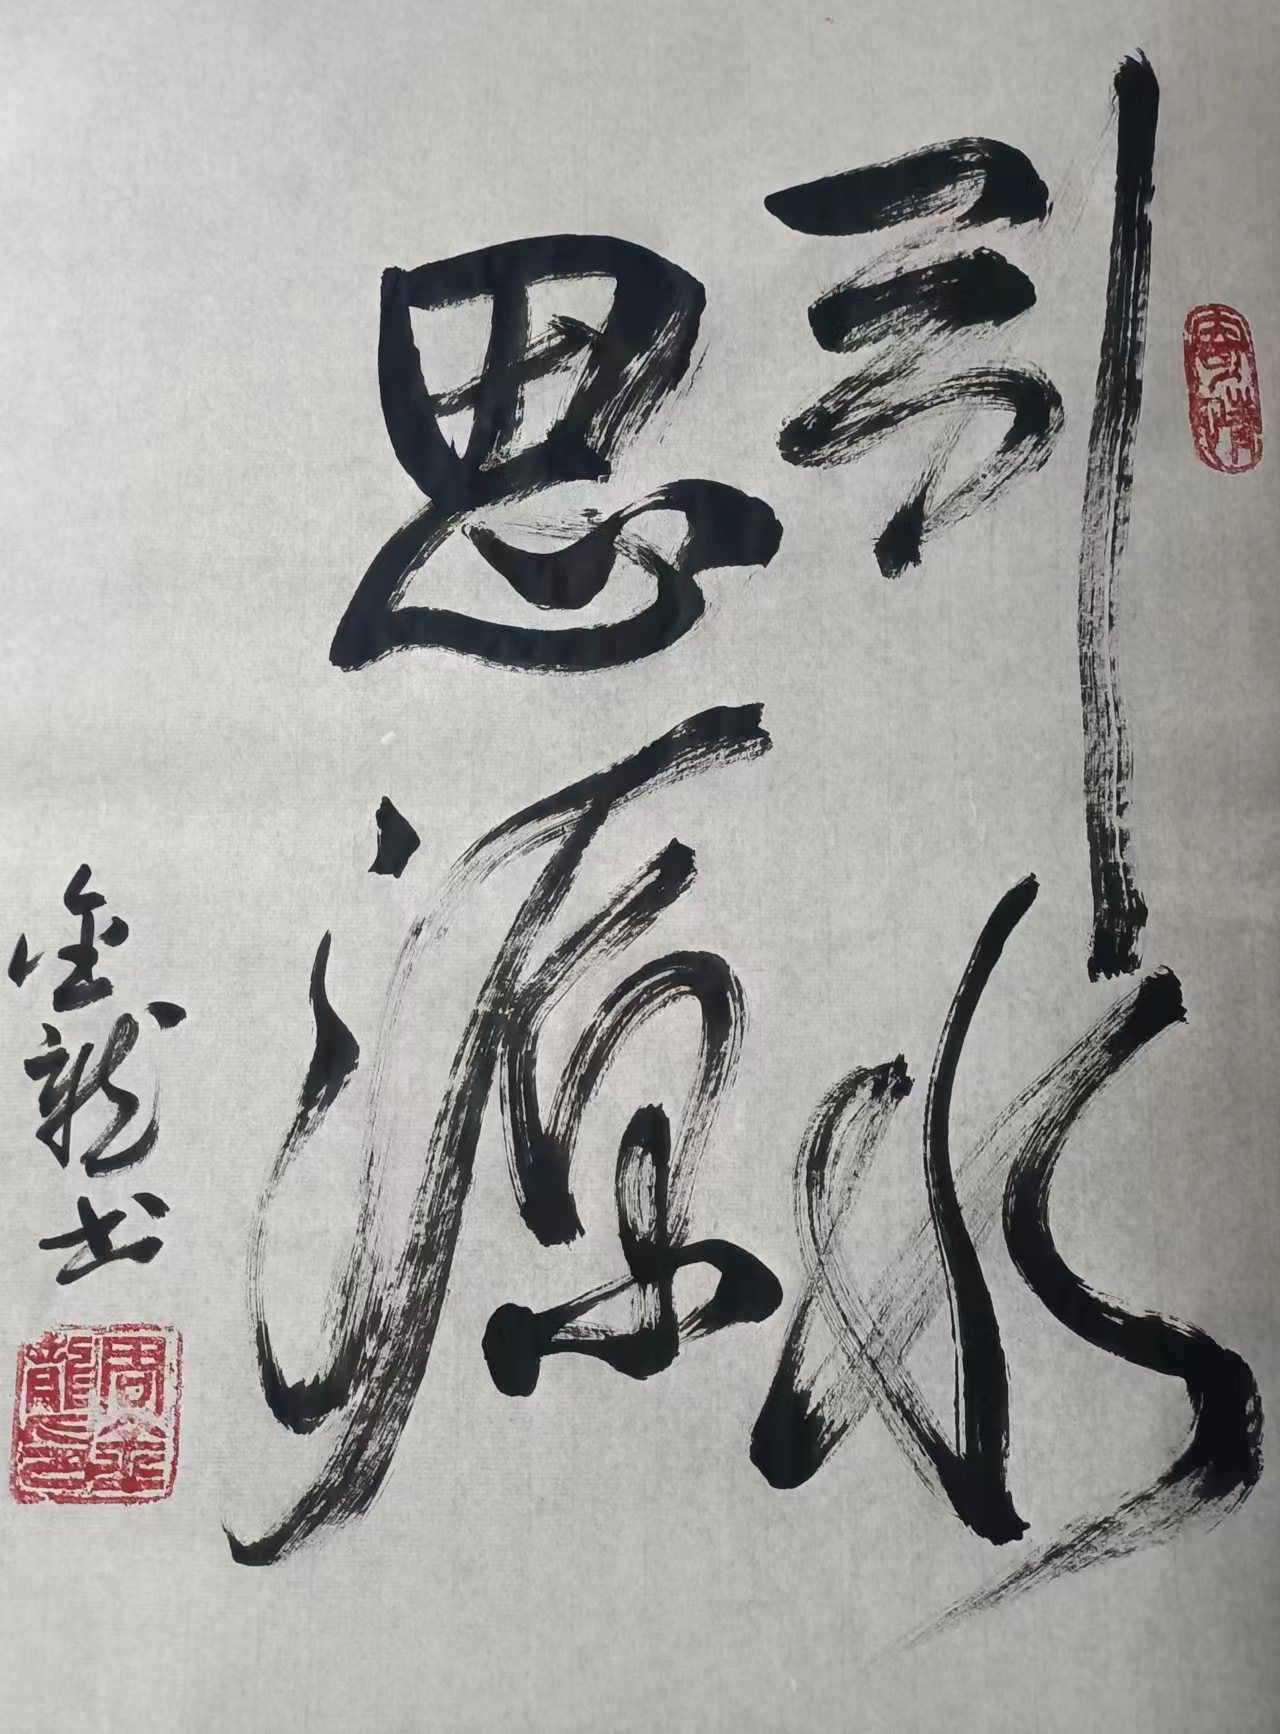 引水
思源
金龍书
周金
龍印